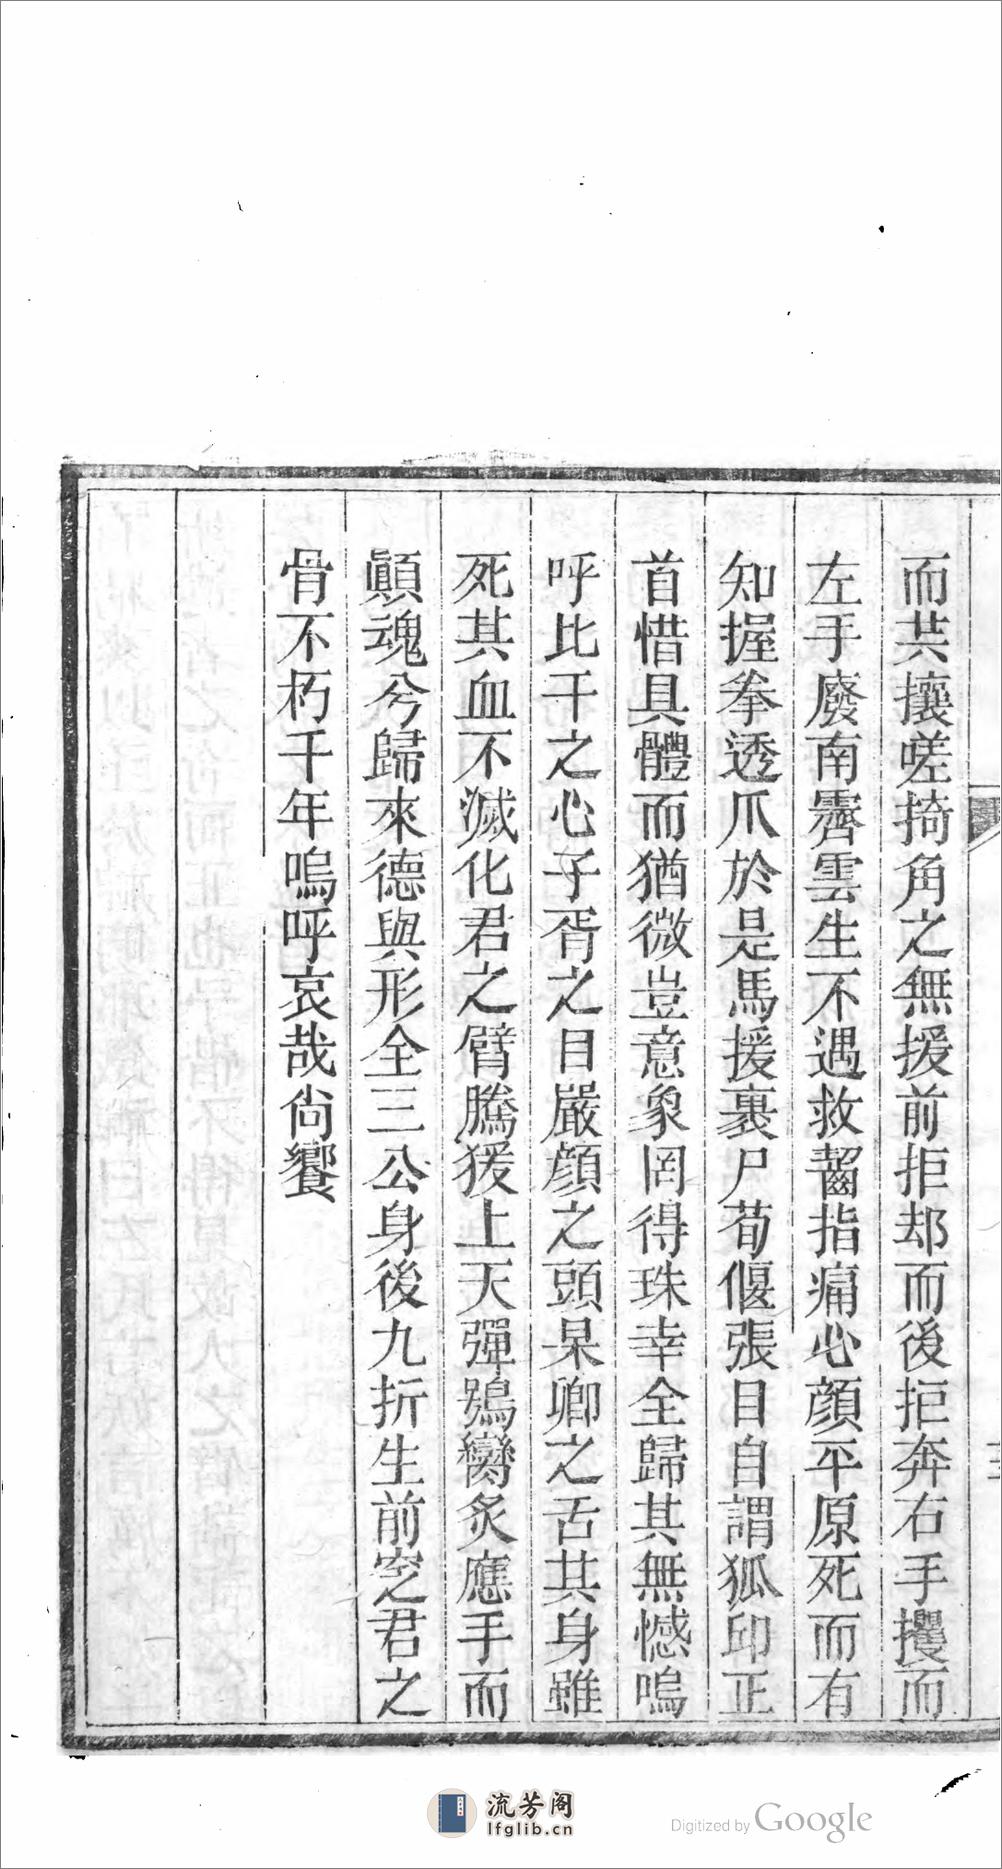 而共攘嗟掎角之無援前拒却而後拒奔右手攫而
左手廢南霽雲生不遇救齧指痛心顏平原死而有
知握拳透爪於是馬援裹尸荀偃張目自謂狐印正
首惜具體而猶微豈意象罔得珠幸全歸其無憾嗚
呼比干之心子胥之目嚴顏之頭杲卿之舌其身雖
死其血不滅化君之臂騰猨上天彈鴞臠炙應手而
顛魂兮歸來德與形全三公身後九折生前窆君之
骨不朽千年嗚呼哀哉尙饗
流芳阁
lfglib.cn
Digitized by Google